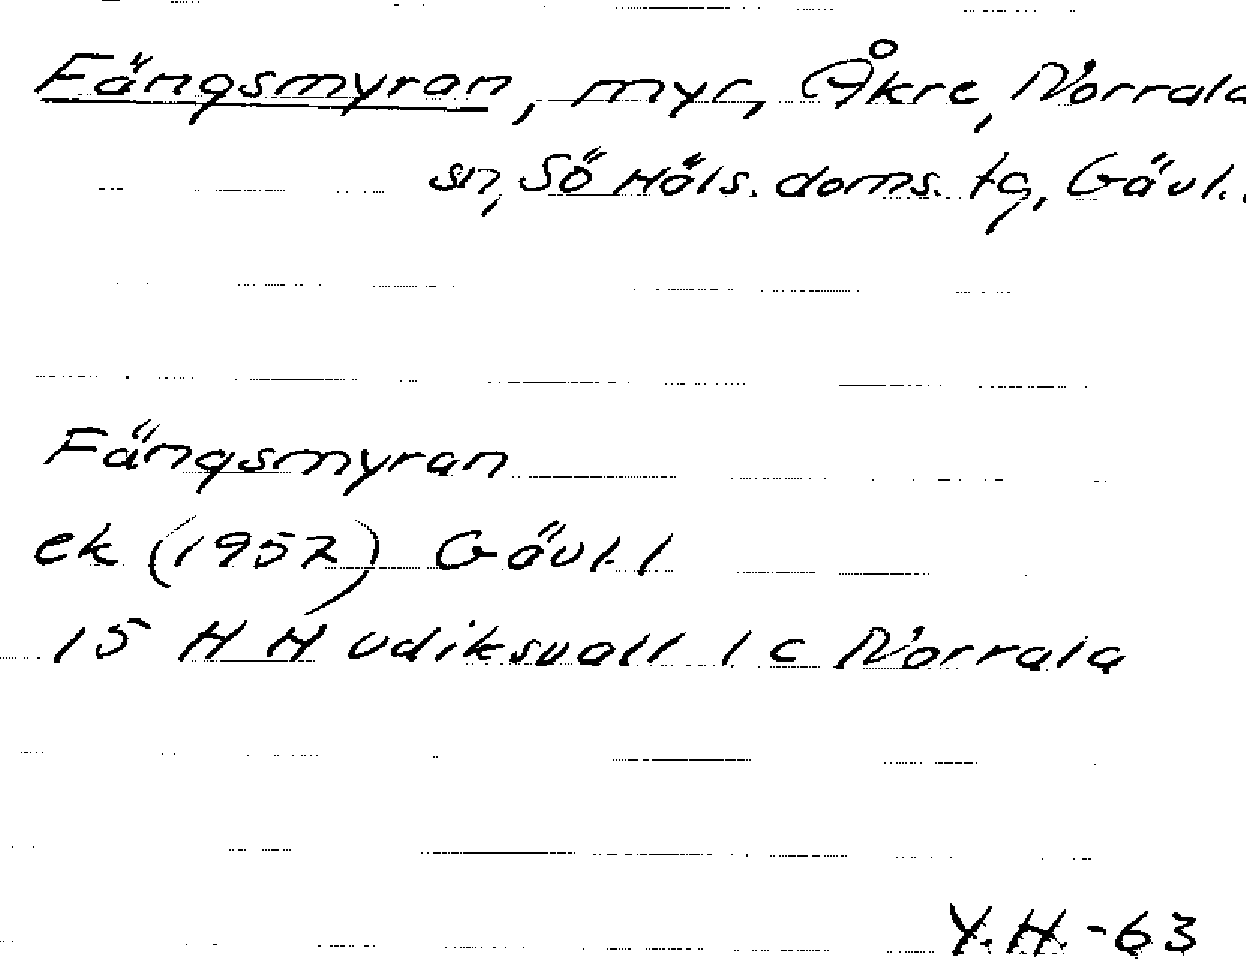 Fängsmyran, myr, Åkre, Norrala
sn, Sö Häls. doms. tg, Gävl.
Fängsmyran
ek (1957) Gävl. l
15 H Hudiksvall 1 c Norrala
Y.H.-63